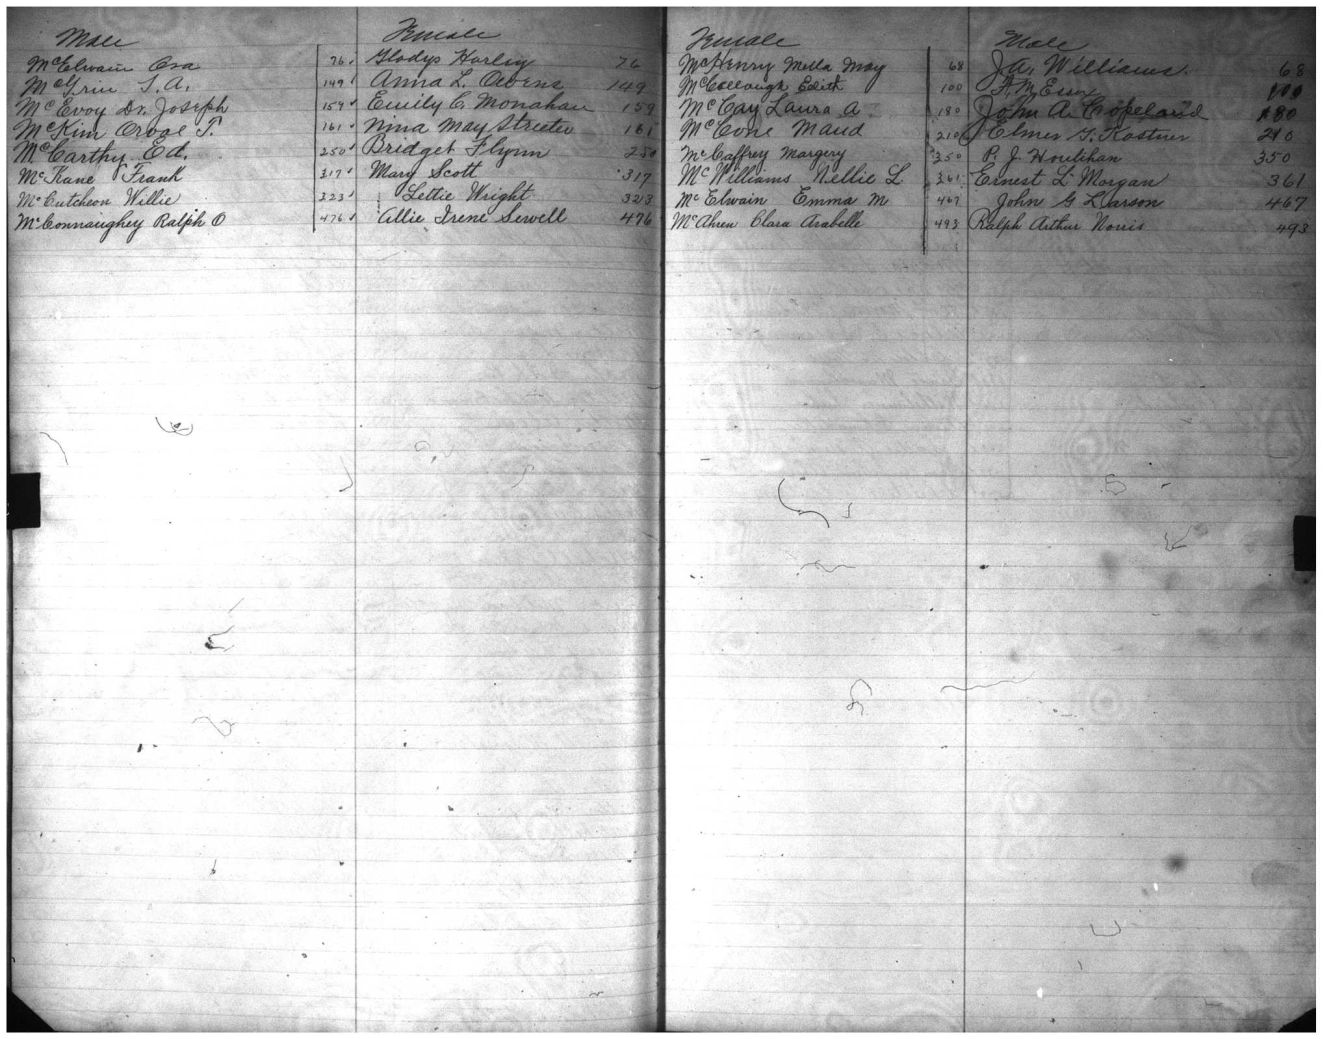 Male Female
McElwain Ora 76 Gladys Harley 76
McGrew S. A. 149 Anna L. Owens 149
McEvoy Dr. Joseph 159 Emily C. Monahan 159
McKim Orval T. 161 Nina May Streeter 161
McCarthy Ed. 250 Bridget Flynn 250
McKane Frank 317 Mary Scott 317
McCutcheon Willie 323 Lettie Wright 323
McConnaighey Ralph O 476 Allie Irene Sewell 476
Female Male
McHenry Mella May 68 J. A. Williams. 68
McCollough Edith 100 F. M. 100
McCay Laura A 180 John A. Copeland 180
McCone Maud 210 Elmer G. Kastner 210
McCaffrey Margery 350 P. J. Houlihan 350
McWilliams Nellie L 361 Ernest L. Morgan 361
McElwain Emma M 467 John G Larson 467
McAhren Clara Arabelle 493 Ralph Arthur Norris 493